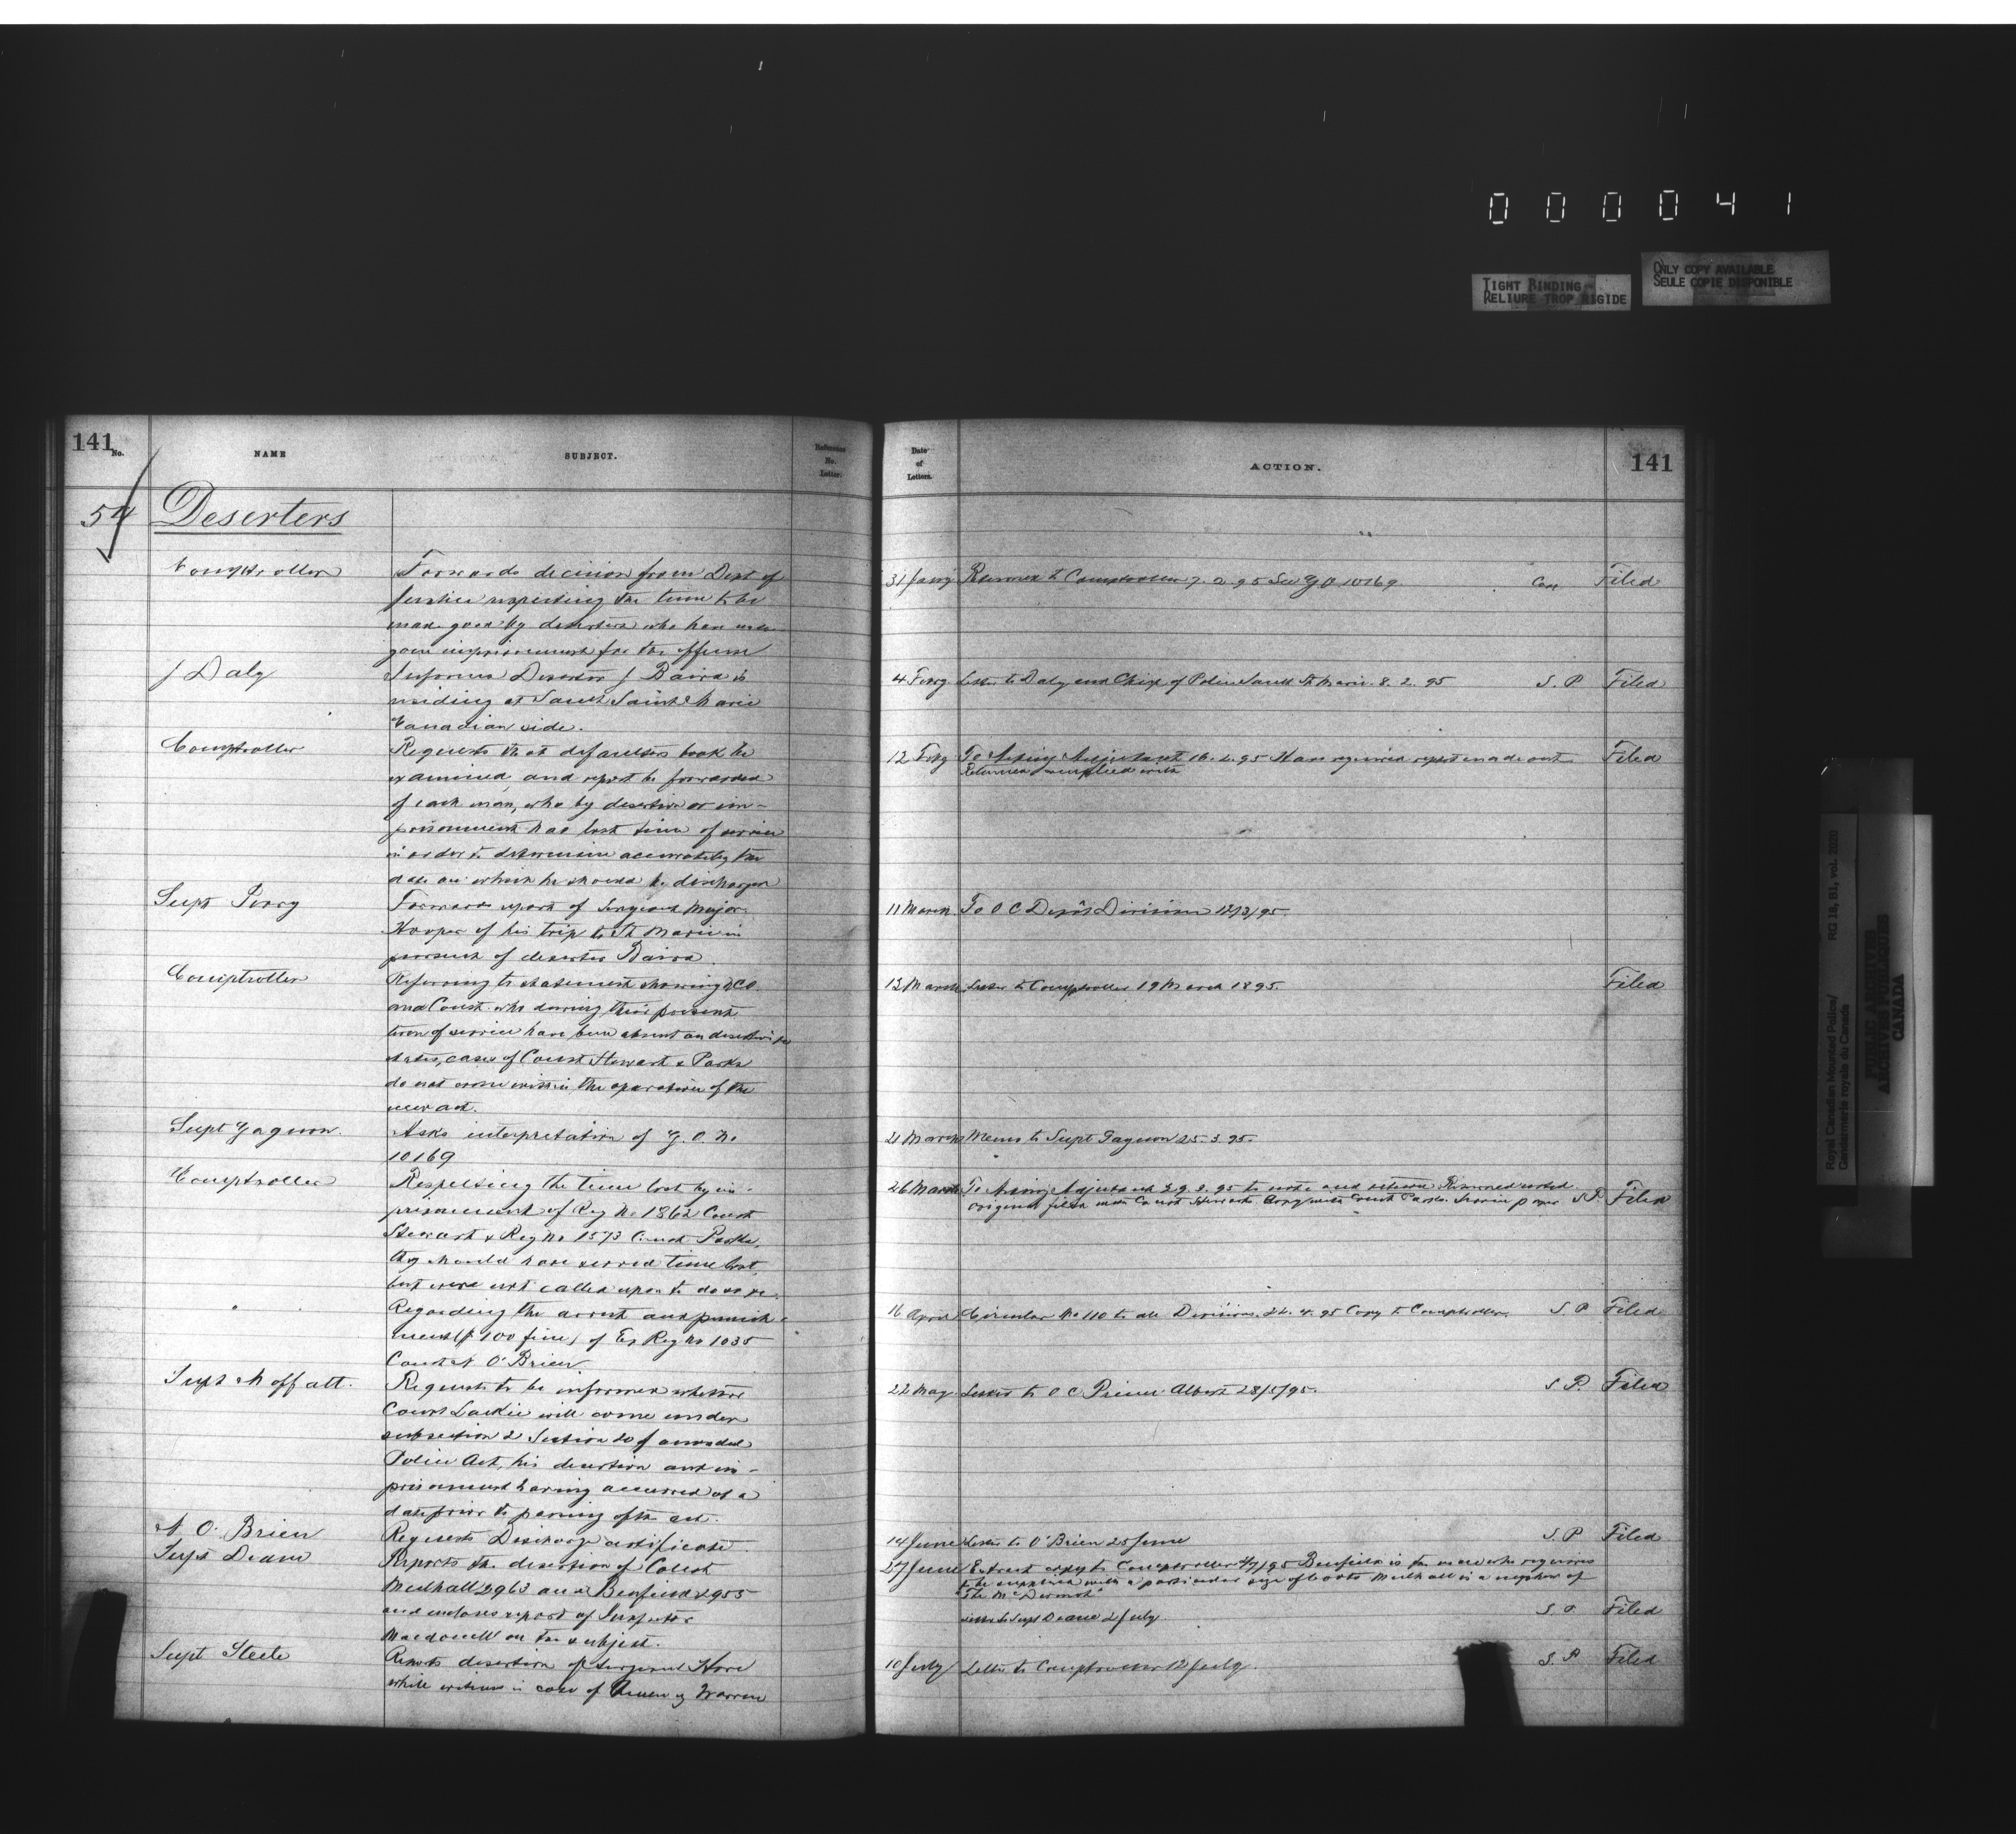 0 0 0 0 4 1
TIGHT BINDING
RELIURE TROP RIGIDE
ONLY COPY AVAILABLE
SEULE COPIE DISPONIBLE
141
No.
NAME
SUBJECT.
Reference
No.
Letter.
Date
of
Letters.
ACTION.
141
54 Deserters
Comptroller
Forwards decision from Dept of
Justice respecting the time to be
made good by deserters who have under
gone imprisonment for the offence
31 Jany Returned to Comptroller 7.2.95 See G O 10169. Filed
J Daly
Informs Deserter J Baird is
residing at Sault Sainte Marie
Canadian side.
4 Feby Letter to Daly and Chief of Police Sault St Marie. 8.2.95 S.P Filed
Comptroller
Requests that defaulters book be
examined, and report be forwarded
of each man, who by desertion or im-
prisonment has lost time of service
in order to determine accurately the
date on which he should be discharged
12 Feby To Acting Adjutant 16.2.95 Have required report made out Filed
Returned complied with
Supt Perry
Forwards report of Sergeant Major
Hooper of his trip to St Marie in
pursuit of deserter Baird.
11 March To O C Depôt Division 12/3/95.
Comptroller
Referring to statement showing NCO
and Const. who during their present
term of service have been absent on desertion
states, cases of Const Stewart & Parks
do not come within the operation of the
new act.
13 March Letter to Comptroller 19 March 1895. Filed
Supt Gagnon.
Asks interpretation of G.O. No
10169
21 March Memo to Supt Gagnon 25.3.95.
Comptroller
Respecting the time lost by im-
prisonment of Reg No 1862 Const
Stewart & Reg No 1573 Const Parks,
they should have served time lost,
but were not called upon to do so.
26 March To Acting Adjutant 29.3.95 to note and return Returned noted.
original filed with Const Stewarts Copy with Const Parks Service papers S P. Filed
"
Regarding the arrest and punish-
ment ($100 fine) of Ex Reg No 1035
Const N O'Brien
16 April Circular No 110 to all Divisions. 24.4.95 Copy to Comptroller. S P Filed
Supt Moffatt.
Requests to be informed whether
Const Lackie will come under
subsection 2 Section 20 of amended
Police Act, his desertion and im-
prisonment having occurred at a
date prior to passing of the act.
22 May Letter to O C Prince Albert 28/5/95. S P. Filed
N O'Brien
Requests Discharge certificate.
14 June Letter to O'Brien 25 June S.P Filed
Supt Deane
Reports the desertion of Const
Mulhall 2963 and Benfield 2955
and encloses report of Inspector
Macdonell on the subject.
27 June Extract copy to Comptroller 4/7/95 Benfield is the man who requires
to be supplied with a particular size of boots Mulhall is a nephew of
"The McDermott"
Letter to Supt Deane 2 July. S.P. Filed
Supt Steele
Reports desertion of Sergeant Hore
while witness in case of Queen vs Warren
10 July Letter to Comptroller 12 July. S.P Filed
Royal Canadian Mounted Police/
Gendarmerie royale du Canada
RG 18, B1, vol. 2020
PUBLIC ARCHIVES
ARCHIVES PUBLIQUES
CANADA